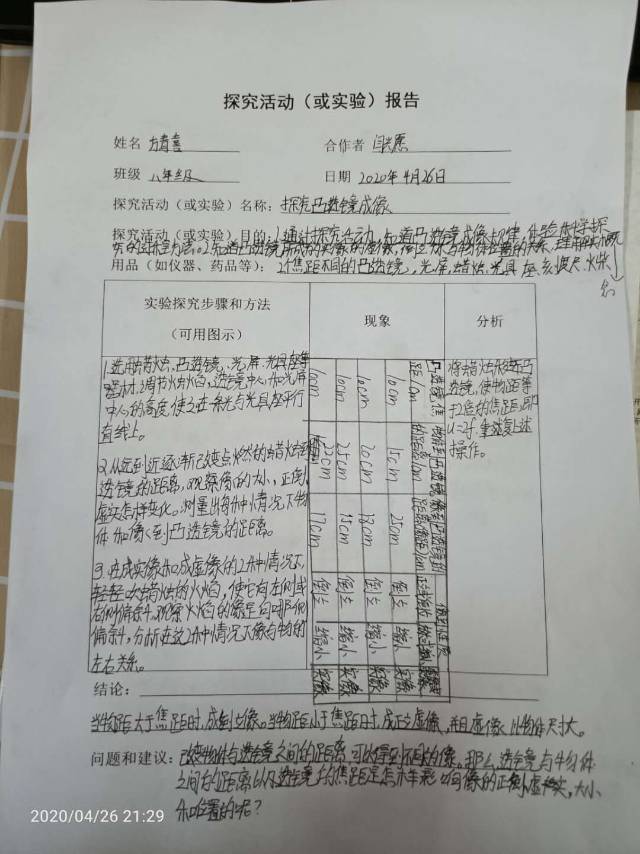 探究活动（或实验）报告
姓名
合作者
班级 八年级
日期 2020年4月26日
探究活动（或实验）名称：探究凸透镜成像
探究活动（或实验）目的：1.通过探究活动，知道凸透镜成像规律，体验科学探
用品（如仪器、药品等）：2个焦距不同的凸透镜，光屏，蜡烛，光具座，刻度尺，火柴
实验探究步骤和方法
（可用图示）
现象
分析
1.选用蜡烛，凸透镜，光屏，光具座等
器材，调节烛焰，透镜中心和光屏
中心的高度，使之在一条光与光具座平行
直线上。
2.从远到近逐渐改变点燃的蜡烛到
透镜的距离，观察像的大小，正倒，
虚实怎样变化。测量出每种情况下物
体和像到凸透镜的距离。
3.选成实像和成虚像的2种情况下，
轻轻吹蜡烛的火焰，使它向左侧或
右侧偏斜，观察火焰的像是向哪侧
偏斜，分析在这2种情况下像与物的
左右关系。
凸透镜焦距/cm
10cm
10cm
10cm
10cm
15cm
20cm
25cm
22cm
25cm
18cm
15cm
17cm
倒立
倒立
倒立
倒立
缩小
缩小
缩小
缩小
实像
实像
实像
实像
将蜡烛火焰靠近凸
透镜，使物距等
于2倍的焦距，即
u=2f，重述复上述
操作。
结论：
当物距大于焦距时，成倒立像。当物距小于焦距时，成正立虚像，并且虚像比物体尺寸大。
问题和建议：改变物体与透镜之间的距离，可以得到不同的像。那么透镜与物体
之间的距离以及透镜的焦距是怎样影响像的正倒，虚实，大小
和位置的呢？
2020/04/26 21:29